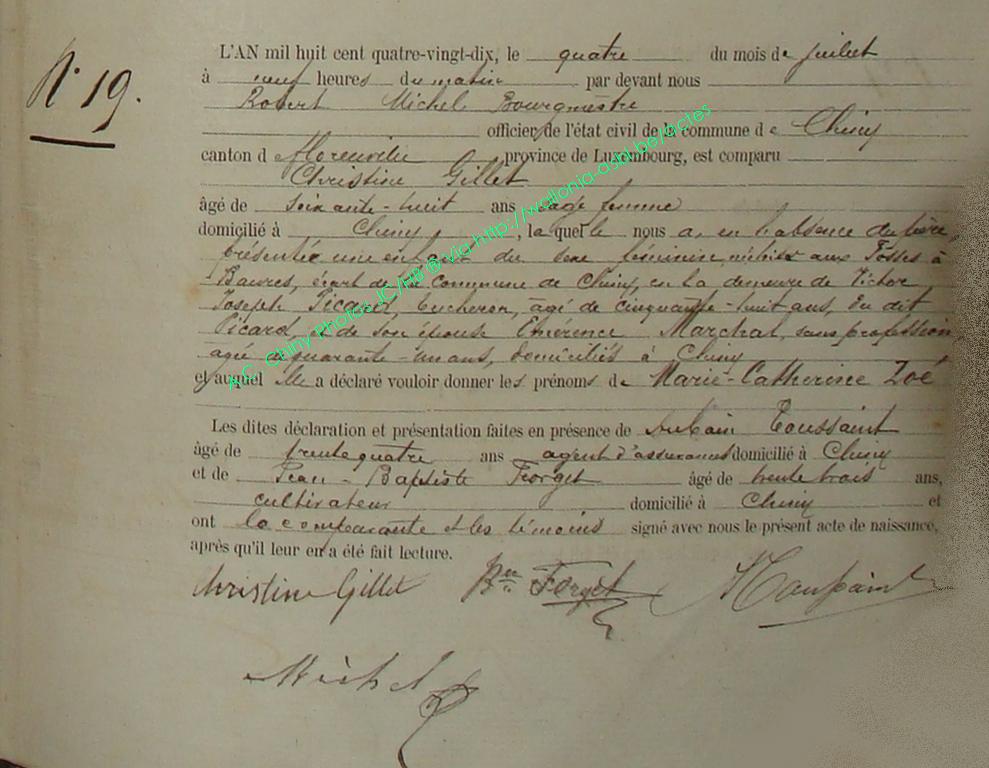 N° 19.
L'AN mil huit cent quatre-vingt-dix, le quatre du mois de juillet
à neuf heures du matin par devant nous
Robert Michel Bourgmestre
officier de l'état civil de la commune de Chiny
canton de Florenville province de Luxembourg, est comparu
Christine Gillet
âgé de soixante-huit ans sage femme
domicilié à Chiny, la quelle nous a, en l'absence du père,
présentée une enfant du sexe féminin, aux Fosses à
Baures, écart de la commune de Chiny, en la demeure de Victor
Joseph Picard, bucheron, agé de cinquante-huit ans, du dit
Picard, et de son épouse Emérence Marchal, sans profession,
agée de quarante-un ans, domiciliés à Chiny
et auquel elle a déclaré vouloir donner les prénoms de Marie-Catherine Zoé
Les dites déclaration et présentation faites en présence de Toussaint
âgé de trente quatre ans agent d'assurances domicilié à Chiny
et de Jean-Baptiste Forget âgé de trente trois ans,
cultivateur domicilié à Chiny et
ont la comparante et les témoins signé avec nous le présent acte de naissance,
après qu'il leur en a été fait lecture.
Christine Gillet Bte Forget Toussaint
Michel R
A.C. Chiny Photos JC/HB ® via http://wallonia-asbl.be/actes